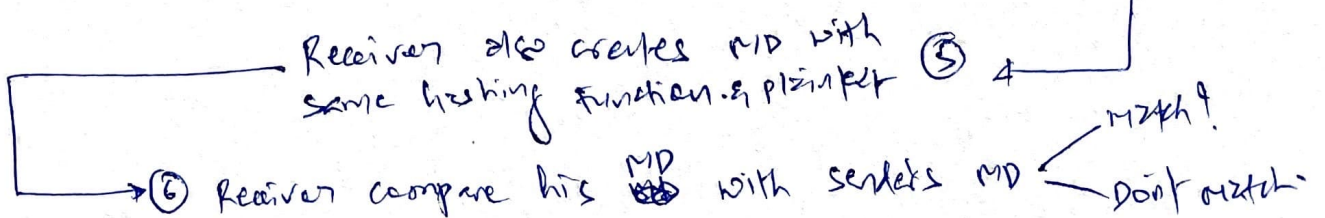 Receiver also creates MD with ⑤
same hashing function & plaintext
Match?
⑥ Receiver compare his MD with sender's MD
Don't match.